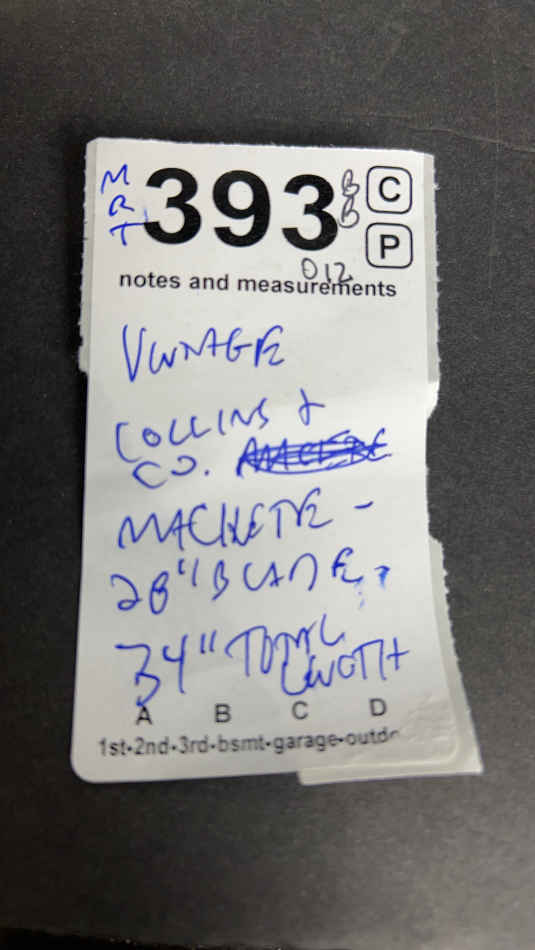 MRT 393 BB C
P
012
notes and measurements
VINTAGE
COLLINS +
CO.
MACHETE -
28" BLADE,
34" TOTAL
LENGTH
A B C D
1st-2nd-3rd-bsmt-garage-outdo